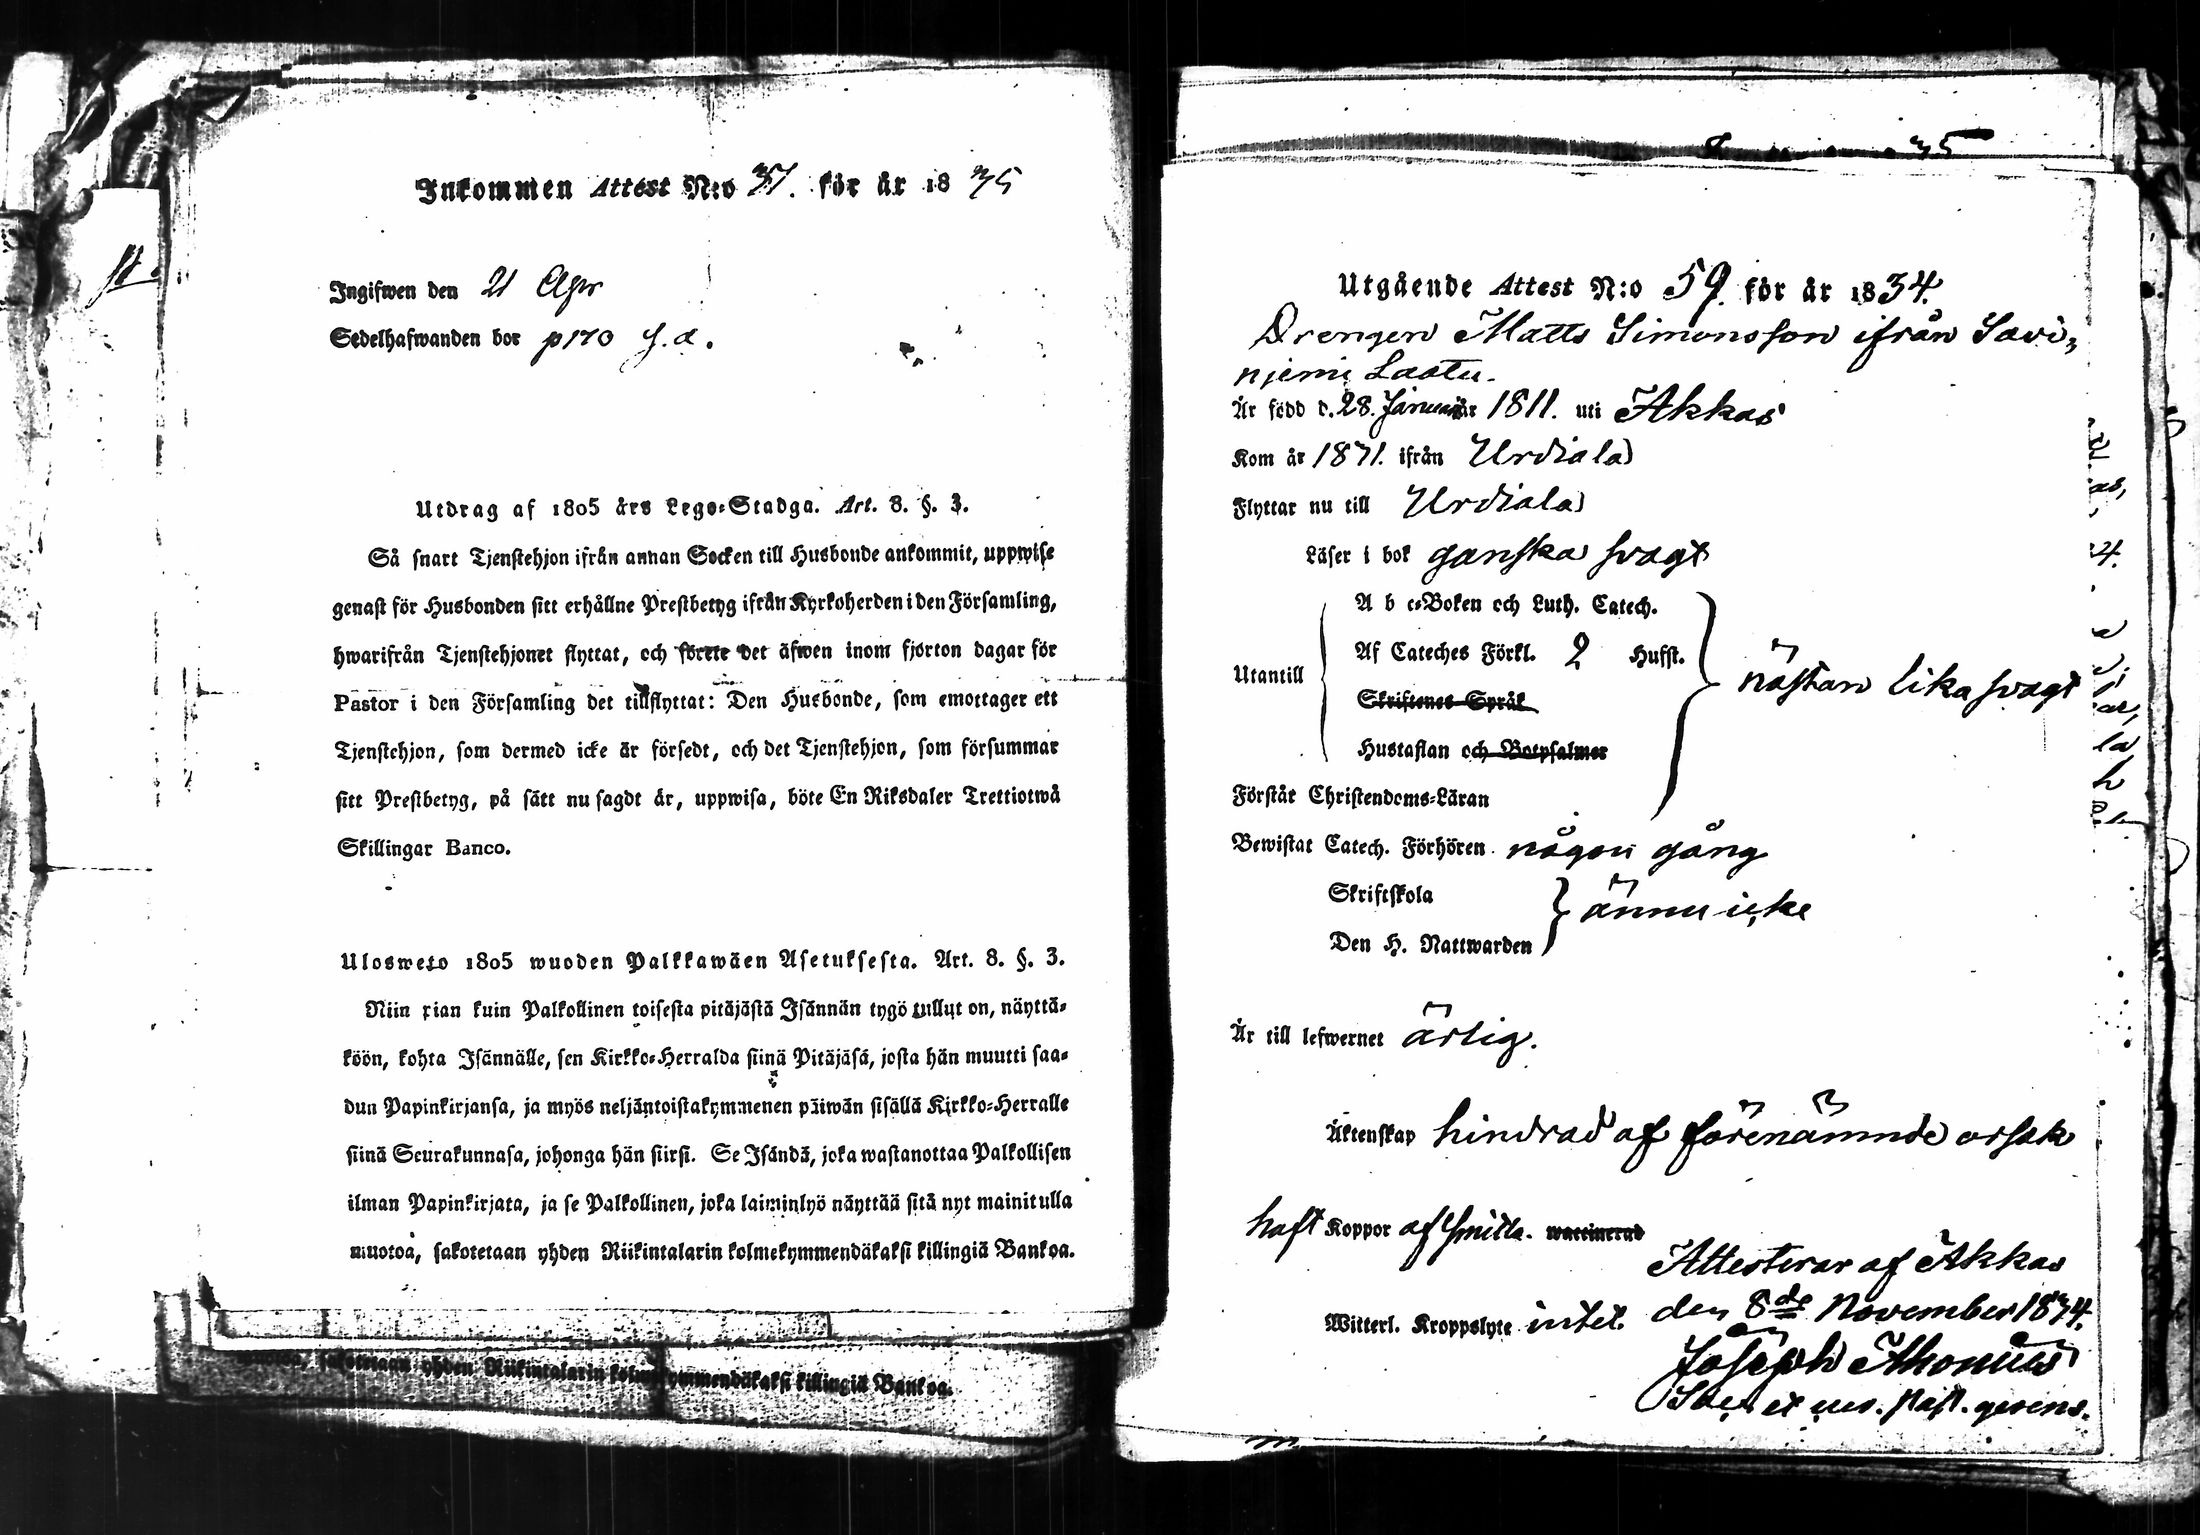 Inkommen Attest N:o 37. för år 1835
Ingifwen den 21 Apr
Sedelhafwanden bor p170 f. a.
Utdrag af 1805 års Lego-Stadga. Art. 8. §. 3.
Så snart Tjenstehjon ifrån annan Socken till Husbonde ankommit, uppwise
genast för Husbonden sitt erhållne Prestbetyg ifrån Kyrkoherden i den Församling,
hwarifrån Tjenstehjonet flyttat, och förete det äfwen inom fjorton dagar för
Pastor i den Församling det tillflyttat: Den Husbonde, som emottager ett
Tjenstehjon, som dermed icke är försedt, och det Tjenstehjon, som försummar
sitt Prestbetyg, på sätt nu sagdt är, uppwisa, böte En Riksdaler Trettiotwå
Skillingar Banco.
Ulosweto 1805 wuoden Palkkawäen Asetuksesta. Art. 8. §. 3.
Niin pian kuin Palkollinen toisesta pitäjästä Isännän tygö tullut on, näyttä-
köön, kohta Isännälle, sen Kirkko-Herralda siinä Pitäjäsä, josta hän muutti saa-
dun Papinkirjansa, ja myös neljäntoistakymmenen päiwän sisällä Kirkko-Herralle
siinä Seurakunnasa, johonga hän siirsi. Se Isändä, joka wastanottaa Palkollisen
ilman Papinkirjata, ja se Palkollinen, joka laiminlyö näyttää sitä nyt mainitulla
muotoa, sakotetaan yhden Riikintalarin kolmekymmendäkaksi killingiä Bankoa.
yhden Riikintalarin kolmekymmendäkaksi killingiä Bankoa.
35
Utgående Attest N:o 59. för år 1834.
Drengen Matts Simonsson ifrån Savi-
njemi Lastu.
Är född d. 28. Januar 1811. uti Akkas
Kom år 1831. ifrån Urdiala
Flyttar nu till Urdiala
Läser i bok ganska svagt
A b c-Boken och Luth. Catech.
Af Cateches Förkl. 2 Hufst.
Utantill nästan lika svagt
Skriftenes Språk
Hustaflan och Botpsalmer
Förstår Christendoms-Läran
Bewistat Catech. Förhören någon gång
Skriftskola
ännu icke
Den H. Nattwarden
Är till lefwernet ärlig.
Äktenskap hindrad af förenämnde orsak
haft Koppor af Smitta. waccinerad
Attesterar af Akkas
Witterl. Kroppslyte intet. den 8de November 1834.
Joseph